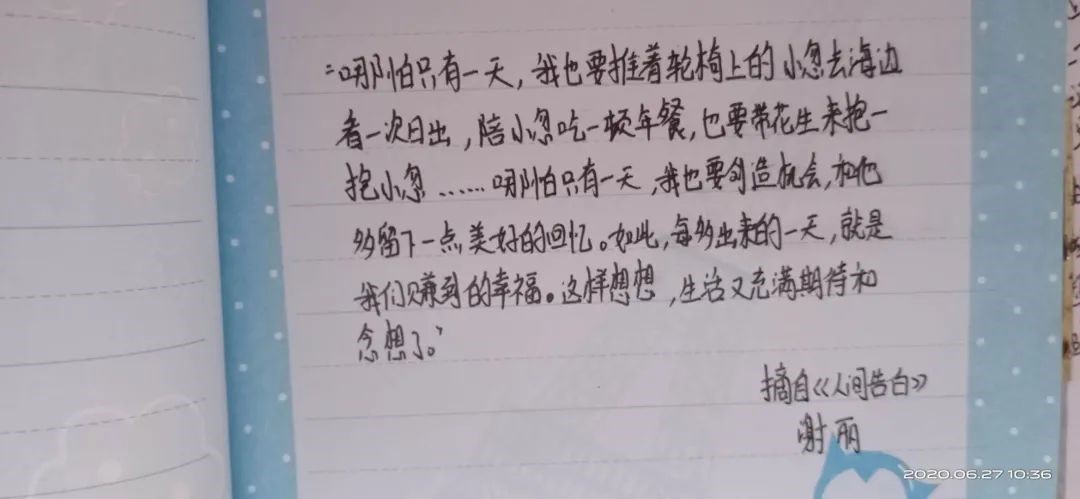 “哪怕只有一天，我也要推着轮椅上的小忽去海边
看一次日出，陪小忽吃一顿年餐，也要带花生来抱一
抱小忽……哪怕只有一天，我也要创造机会，和他
多留下一点美好的回忆。如此，每多出来的一天，就是
我们赚到的幸福。这样想想，生活又充满期待和
念想了。”
摘自《人间告白》
谢丽
2020.06.27 10:36